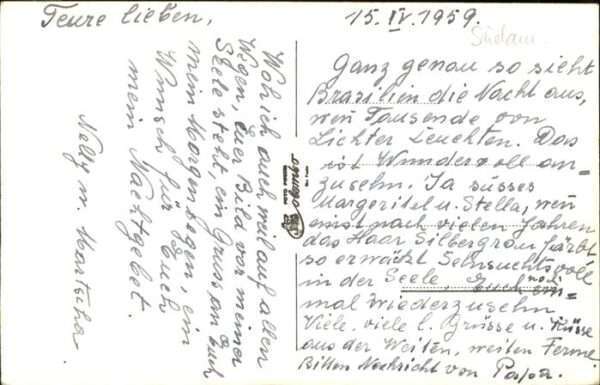 Teure lieben,
15. IV. 1959.
Südam.
Ganz genau so sieht
Brasilien die Nacht aus,
wen Tausende von
Lichter Leuchten. Das
ist Wundervoll an-
zusehn. Ja süsses
Margeritel u. Stella, wen
einst nach vielen Jahren
das Haar Silbergrau färbt
so erwächt Sehnsuchtsvoll
in der Seele, Euch noch ein-
mal wiederzusehn
Viele, viele l. Grüsse u. Küsse
aus der Weiten, weiten Ferne
Bitten Nachricht von Papa.
Wo ich auch weil auf allen
Wegen, Euer Bild vor meiner
Seele steht, ein Gruss an Euch
mein Morgensegen, ein
Wunsch für Euch
mein Nachtgebet.
Nelly u.